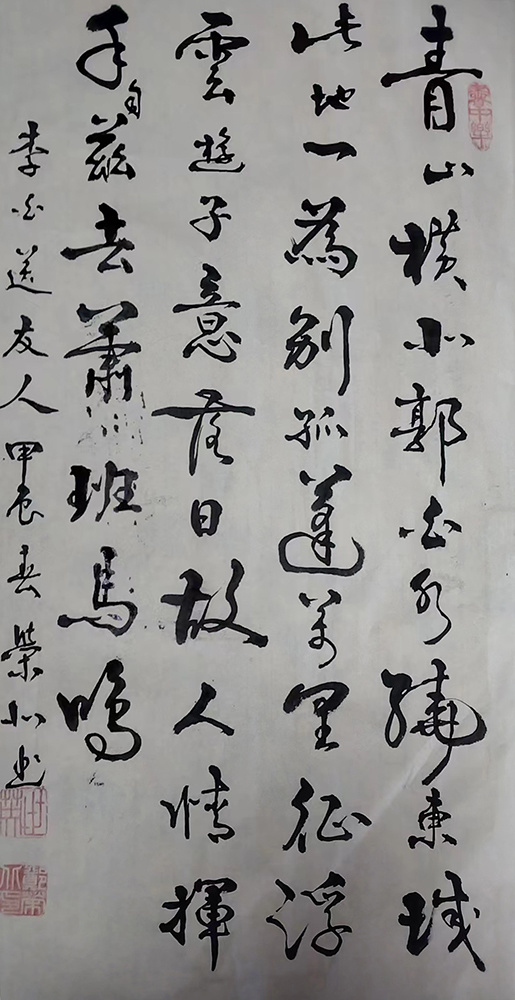 青山横北郭白水繞東城
此地一為別孤蓬萬里征浮
雲遊子意落日故人情揮
手自茲去蕭班馬鳴
李白送友人甲辰春榮